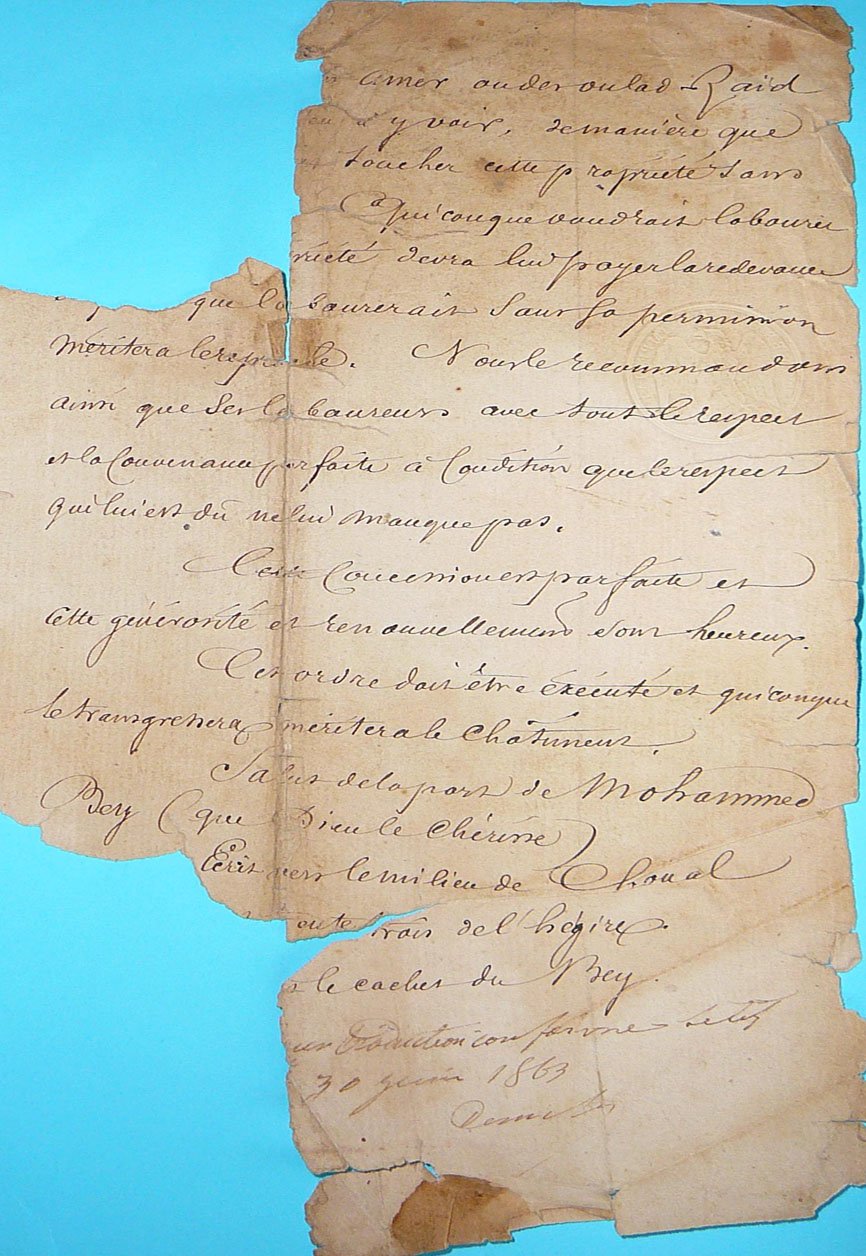 amer ou des oulad Zaid
à y voir, de manière que
toucher cette propriété sans
Quiconque voudrait labourer
riété devra lui payer la redevance
que labourerait sans sa permission
méritera le . Nous le recommandons
ainsi que ses laboureurs avec tout le respect
et la convenance parfaite à condition que le respect
qui lui est dû ne lui manque pas.
Cette concession est parfaite et
cette générosité et renouvellement sont heureux.
Cet ordre doit être éxécuté et quiconque
le transgressera méritera le châtiment.
Salut de la part de Mohammed
Bey (que Dieu le chérisse)
Écrit vers le milieu de Choual
ente trois de l'hégire.
le cachet du Bey.
traduction conforme
30 juin 1863